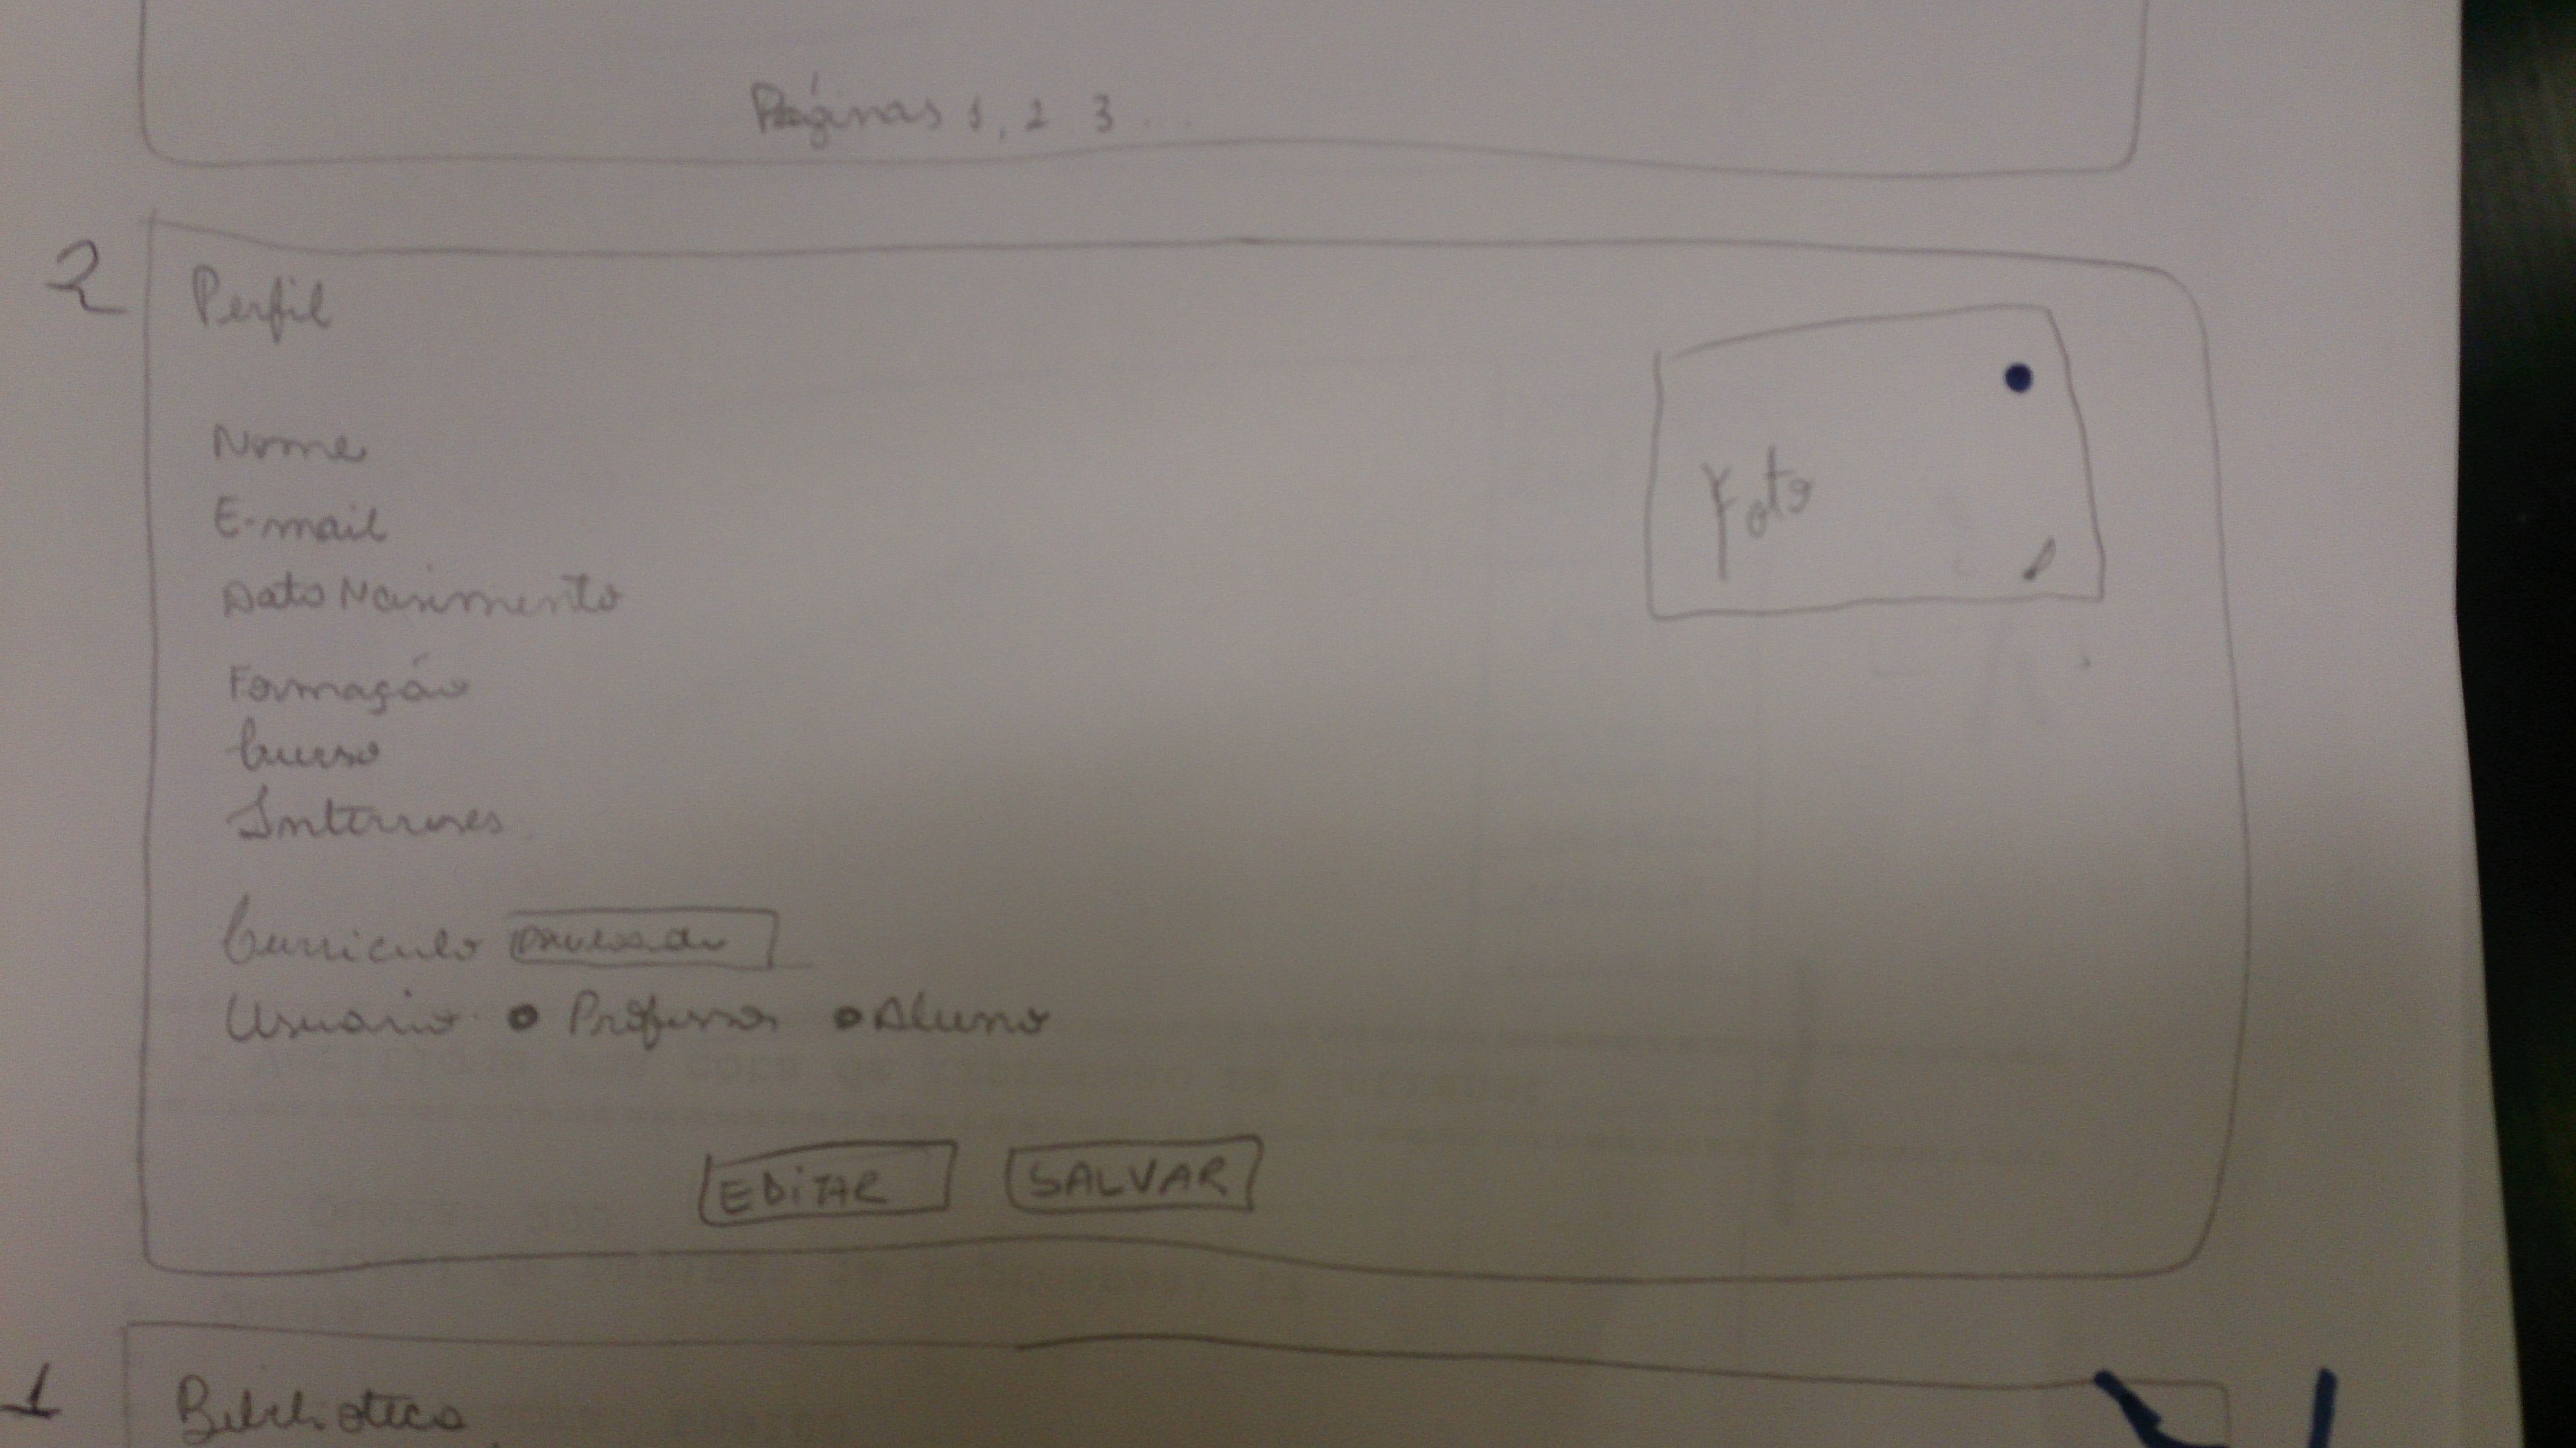 Páginas 1, 2 3 ...
2
Perfil
Nome
E-mail
Foto
Data Nascimento
Formação
Curso
Interesses
Curriculo
Usuario Professor Aluno
EDITAR SALVAR
1
Biblioteca